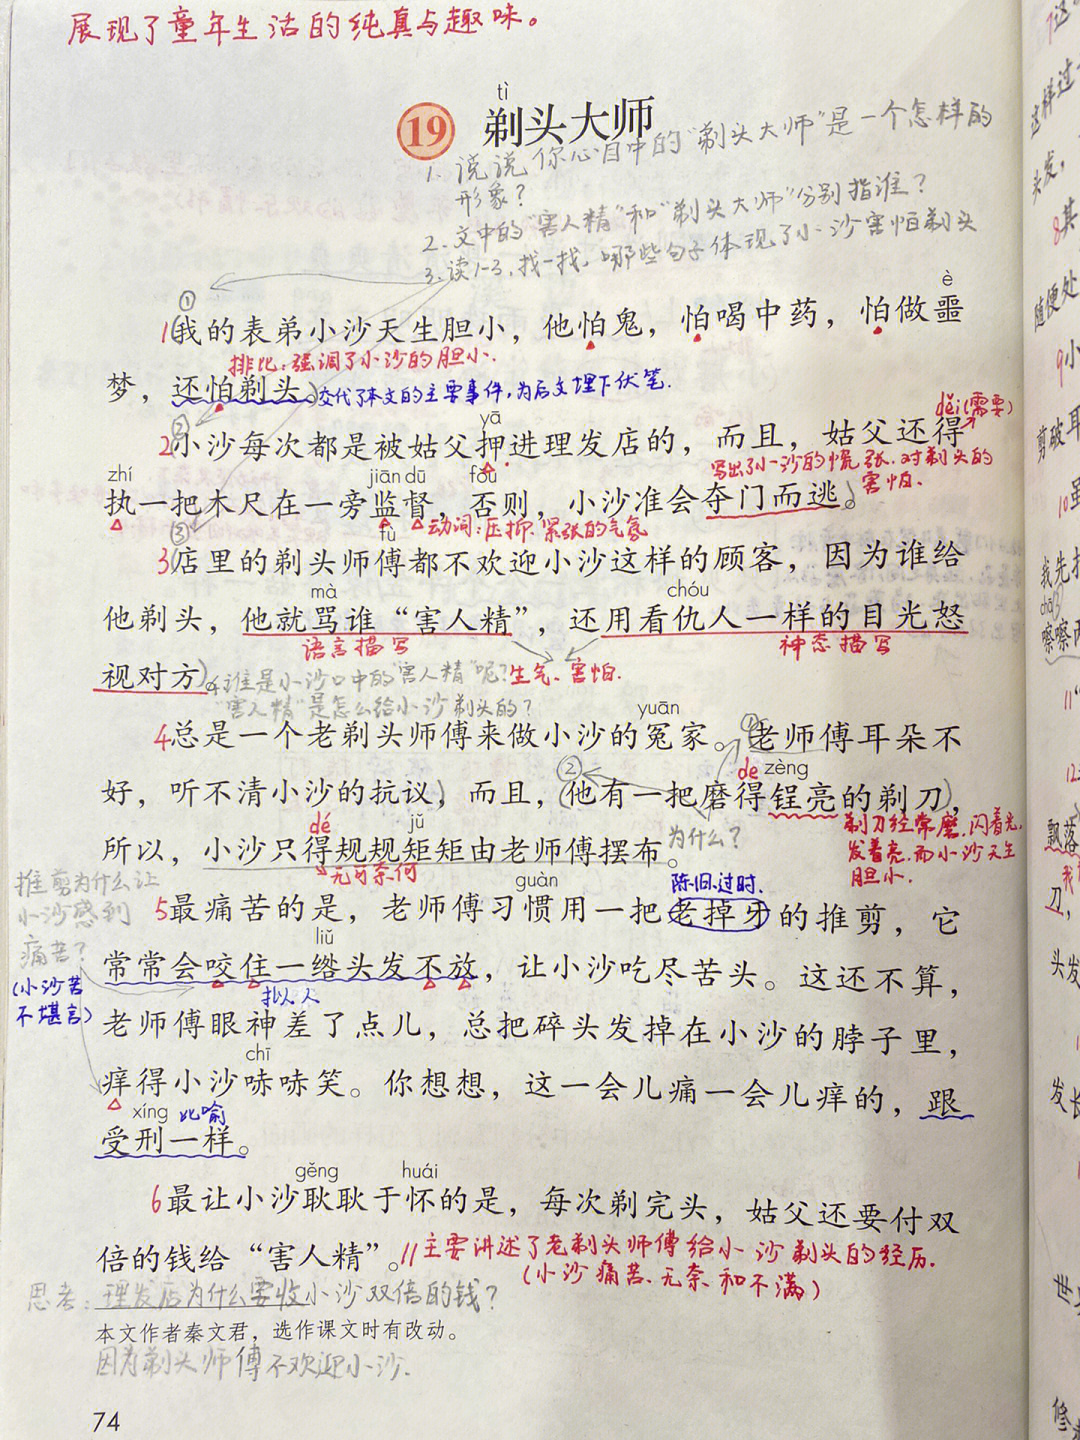 展现了童年生活的纯真与趣味。
tì
19 剃头大师
1. 说说你心目中的“剃头大师”是一个怎样的
形象？
2. 文中的“害人精”和“剃头大师”分别指谁？
3. 读1-3，找一找，哪些句子体现了小沙害怕剃头
① è
1我的表弟小沙天生胆小，他怕鬼，怕喝中药，怕做噩
排比：强调了小沙的胆小.
梦，还怕剃头。交代了本文的主要事件，为后文埋下伏笔.
② yā děi(需要)
2小沙每次都是被姑父押进理发店的，而且，姑父还得
写出了小沙的慌张.对剃头的
害怕.
zhí jiān dū fǒu
执一把木尺在一旁监督，否则，小沙准会夺门而逃。
动词：压抑.紧张的气氛
③ fù
3店里的剃头师傅都不欢迎小沙这样的顾客，因为谁给
mà chóu
他剃头，他就骂谁“害人精”，还用看仇人一样的目光怒
语言描写 神态描写
视对方。4.谁是小沙口中的“害人精”呢？生气、害怕.
“害人精”是怎么给小沙剃头的？
yuān ①
4总是一个老剃头师傅来做小沙的冤家。老师傅耳朵不
② de zèng
好，听不清小沙的抗议，而且，他有一把磨得锃亮的剃刀，
剃刀经常磨.闪着光.
发着亮.而小沙天生
胆小.
dé jǔ
所以，小沙只得规规矩矩由老师傅摆布。为什么？
无可奈何
推剪为什么让
小沙感到
痛苦？
(小沙苦
不堪言)
guàn 陈旧.过时.
5最痛苦的是，老师傅习惯用一把老掉牙的推剪，它
liǔ
常常会咬住一绺头发不放，让小沙吃尽苦头。这还不算，
拟人
老师傅眼神差了点儿，总把碎头发掉在小沙的脖子里，
chī
痒得小沙哧哧笑。你想想，这一会儿痛一会儿痒的，跟
xíng 比喻
受刑一样。
gěng huái
6最让小沙耿耿于怀的是，每次剃完头，姑父还要付双
倍的钱给“害人精”。//主要讲述了老剃头师傅给小沙剃头的经历.
(小沙痛苦.无奈和不满)
思考：理发店为什么要收小沙双倍的钱？
本文作者秦文君，选作课文时有改动。
因为剃头师傅不欢迎小沙.
74
7这
这样过
头发，
8其
随便处
9小
剪破耳
10虽
我先
chā
嚓嚓
11“
12
飘落
我
刀，
头发
发长
世
修